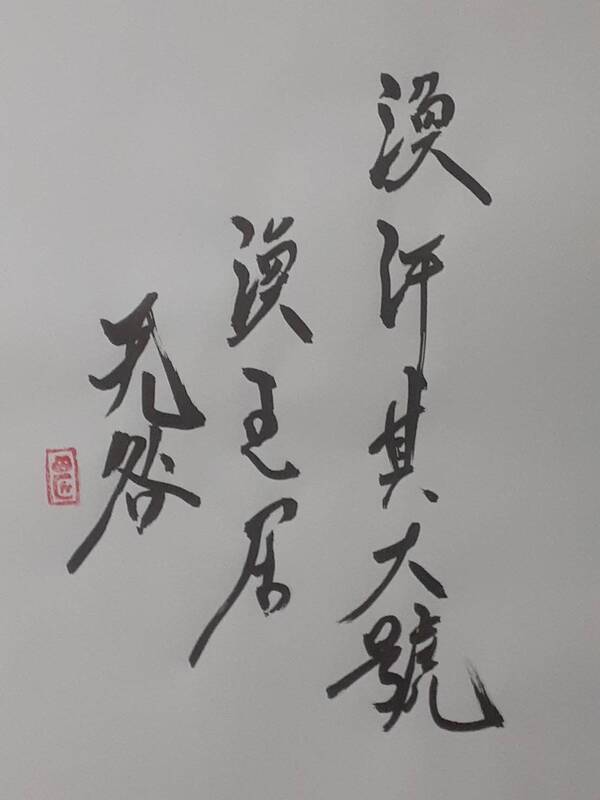 渙汗其大號
渙王居
无咎